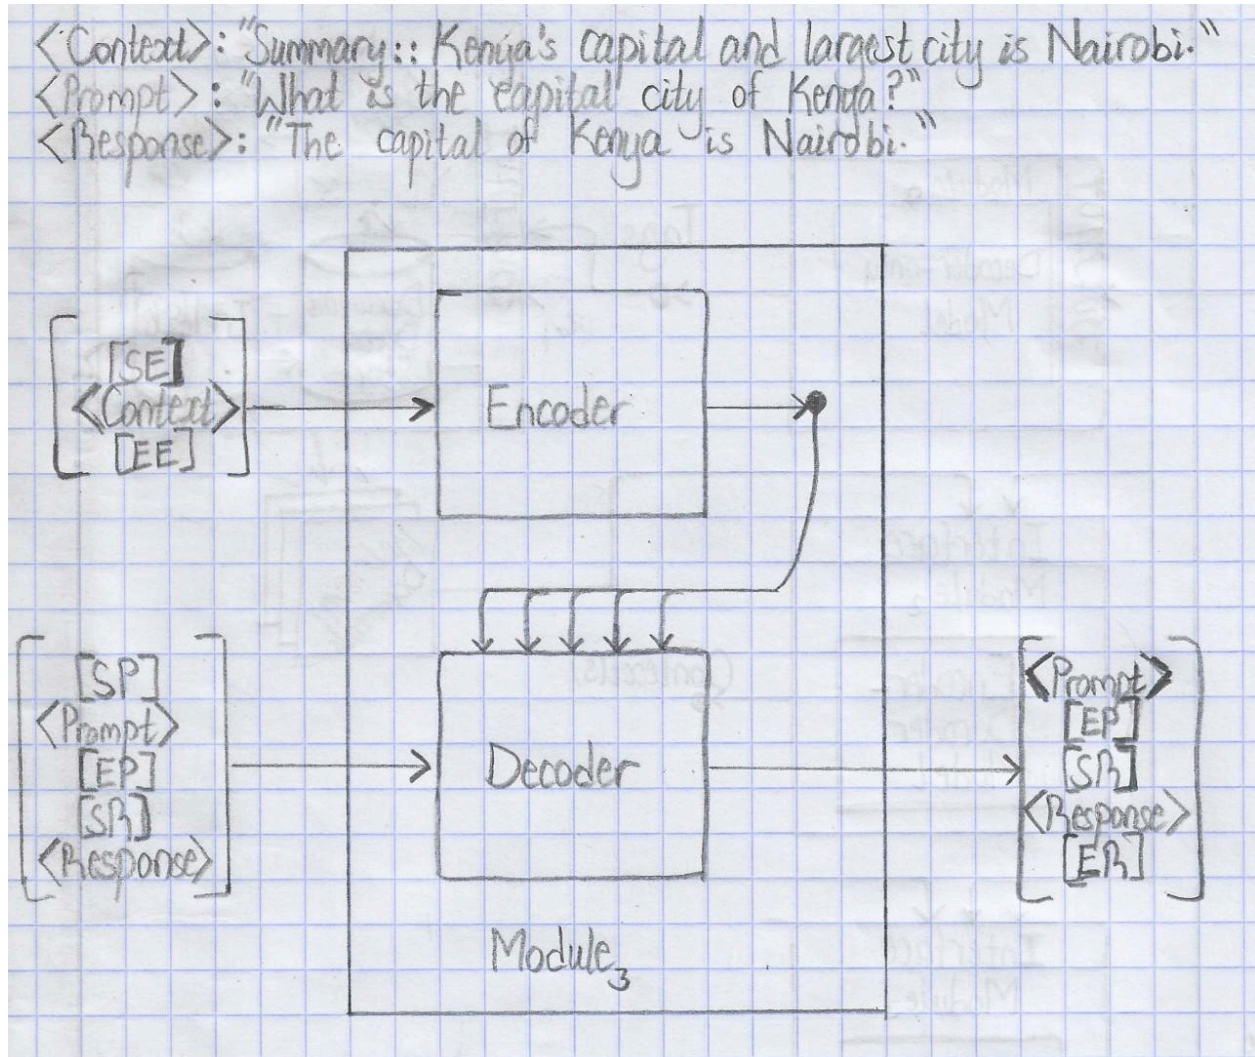 <Context>: "Summary:: Kenya's capital and largest city is Nairobi."
<Prompt>: "What is the capital city of Kenya?"
<Response>: "The capital of Kenya is Nairobi."
[SE]
<Context>
[EE]
Encoder
[SP]
<Prompt>
[EP]
[SR]
<Response>
Decoder
<Prompt>
[EP]
[SR]
<Response>
[ER]
Module₃